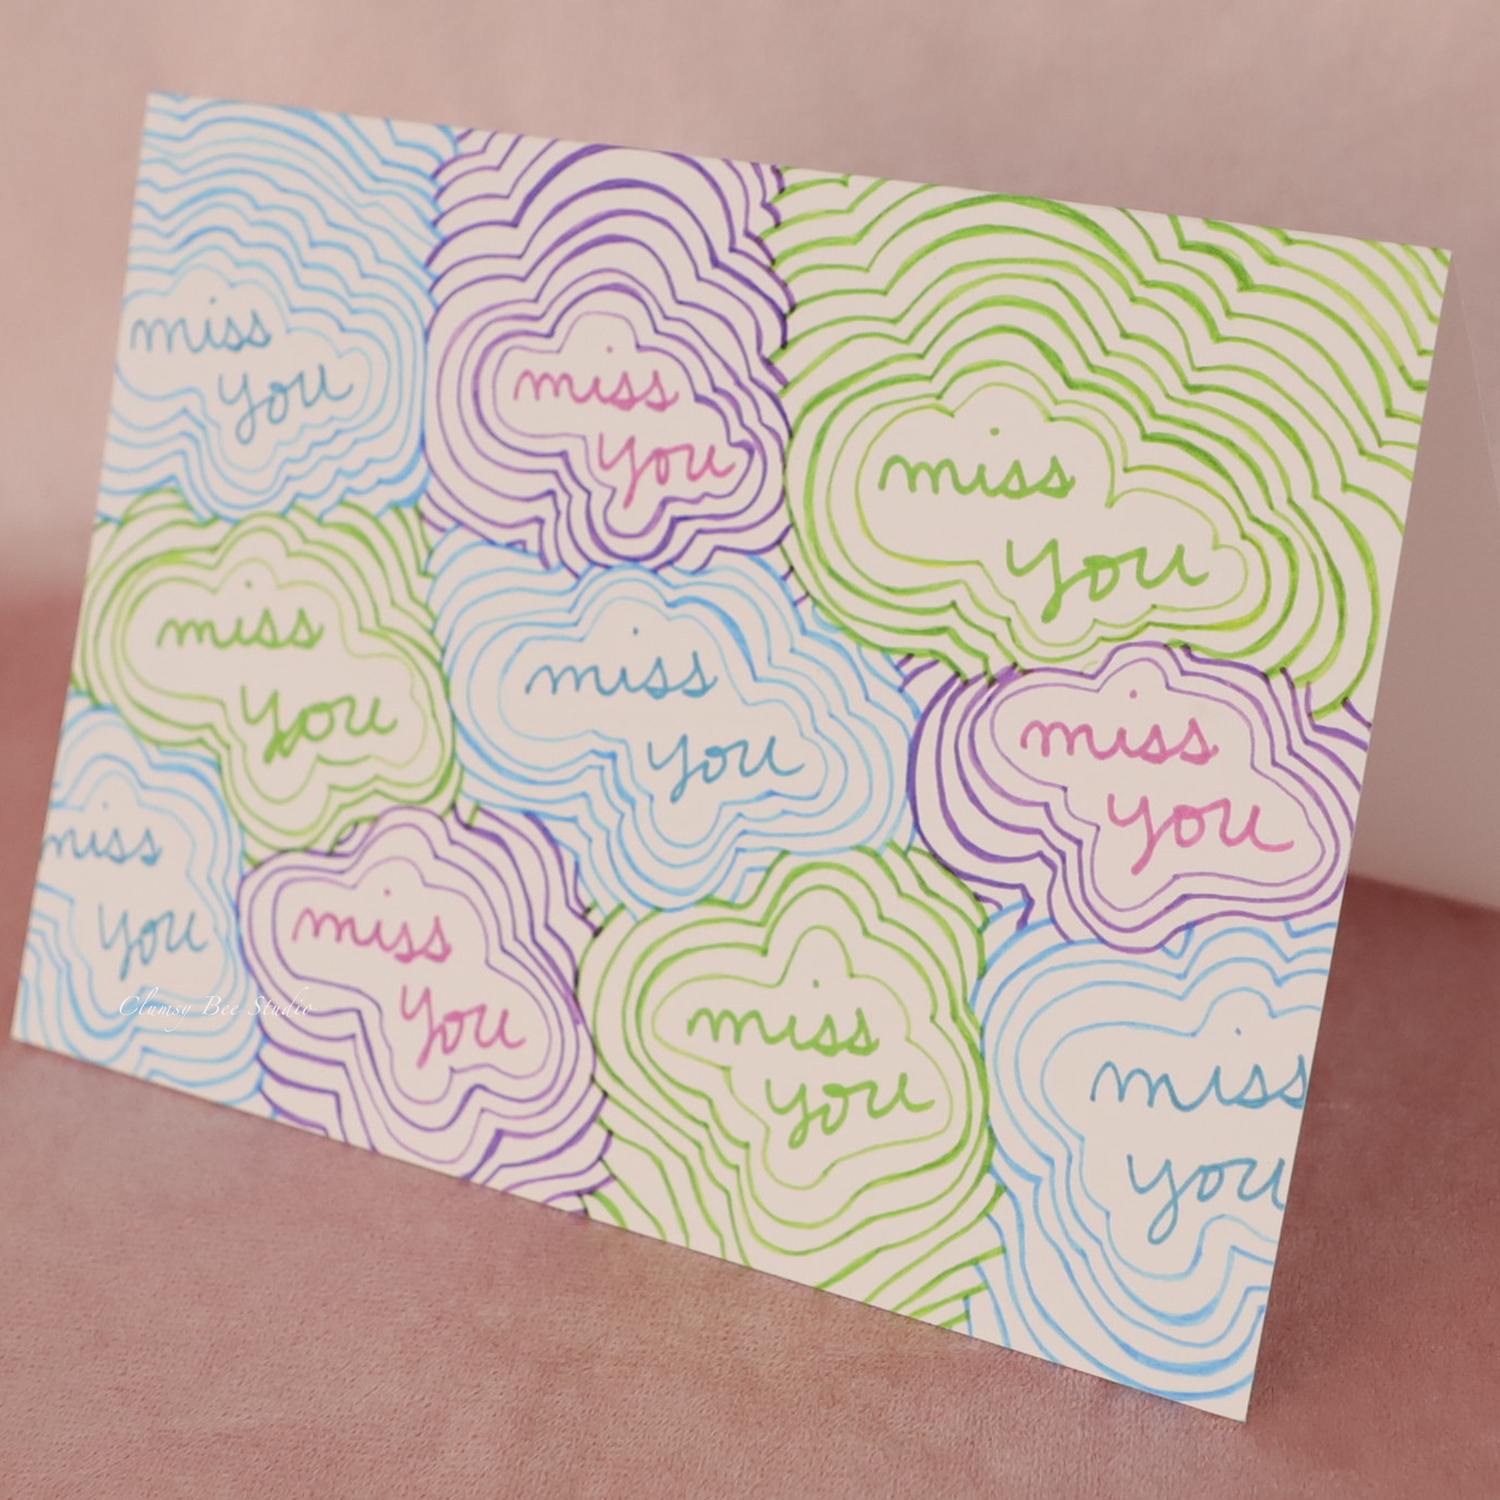 miss
you
miss
you
miss
you
miss
you
miss
you
miss
you
miss
you
miss
you
miss
you
miss
you
Clumsy Bee Studio